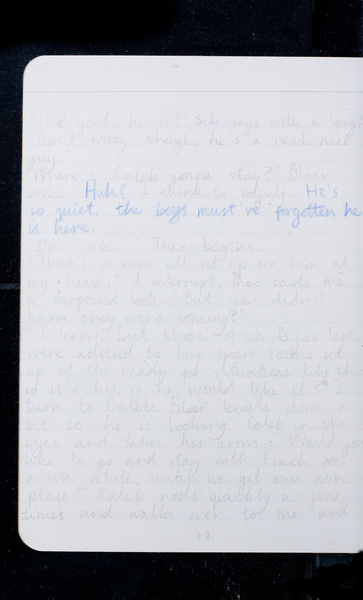 "Hell yeah, he is!" Seb says with a laugh
"Don't worry, though, he's a real nice
guy."
"Where's Caleb gonna stay?" Blair
asks. Huh? I think to myself. He's
so quiet, the boys must've forgotten he
is here.
"Oh, uh..." Theo begins.
"There's a room all set up for him at
my house," I interrupt. Theo casts me
a surprised look. "But you didn't
know they were coming?"
"I know, but those of us left
were advised to keep spare rooms set
up at the ready for situations like this
so it's his, if he would like it." I
turn to Caleb. Blair kneels down a
bit so he is looking Caleb in the
eyes and takes his arms. "Would you
like to go and stay with Finch for
a wee while, until we get our own
place?" Caleb nods quickly a few
times and walks over to me and
12